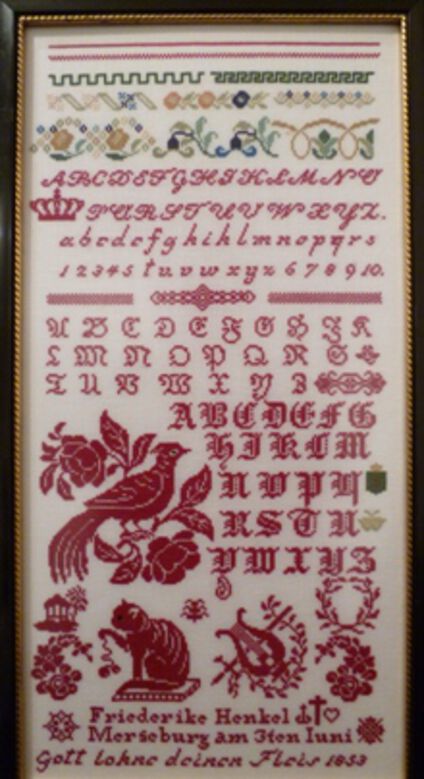 A B C D E F G H I K L M N O
P Q R S T U V W X Y Z.
a b c d e f g h i k l m n o p q r s
1 2 3 4 5 t u v w x y z 6 7 8 9 10.
A B C D E F G H I K
L M N O P Q R S
T U V W X Y Z
A B C D E F G
H I K L M
N O P Q
R S T U
V W X Y Z
Friederike Henkel
Merseburg am 3ten Iuni
Gott lohne deinen Fleis 1853